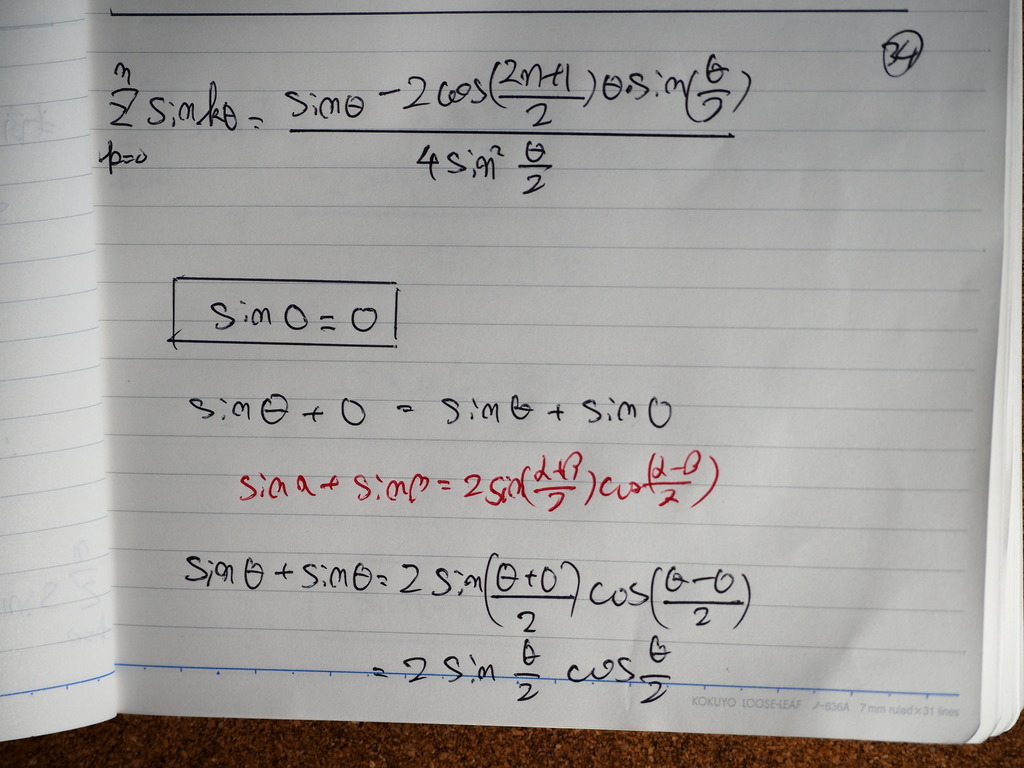 34
n
Σ sin kθ = (sinθ - 2cos((2n+1)/2)θ·sin(θ/2)) / (4 sin² θ/2)
k=0
sin0 = 0
sinθ + 0 = sinθ + sin0
sinα + sinβ = 2sin((α+β)/2)cos((α-β)/2)
sinθ + sinθ = 2 sin((θ+0)/2) cos((θ-0)/2)
= 2 sin θ/2 cos θ/2
KOKUYO LOOSE-LEAF ノ-836A 7 mm ruled×31 lines